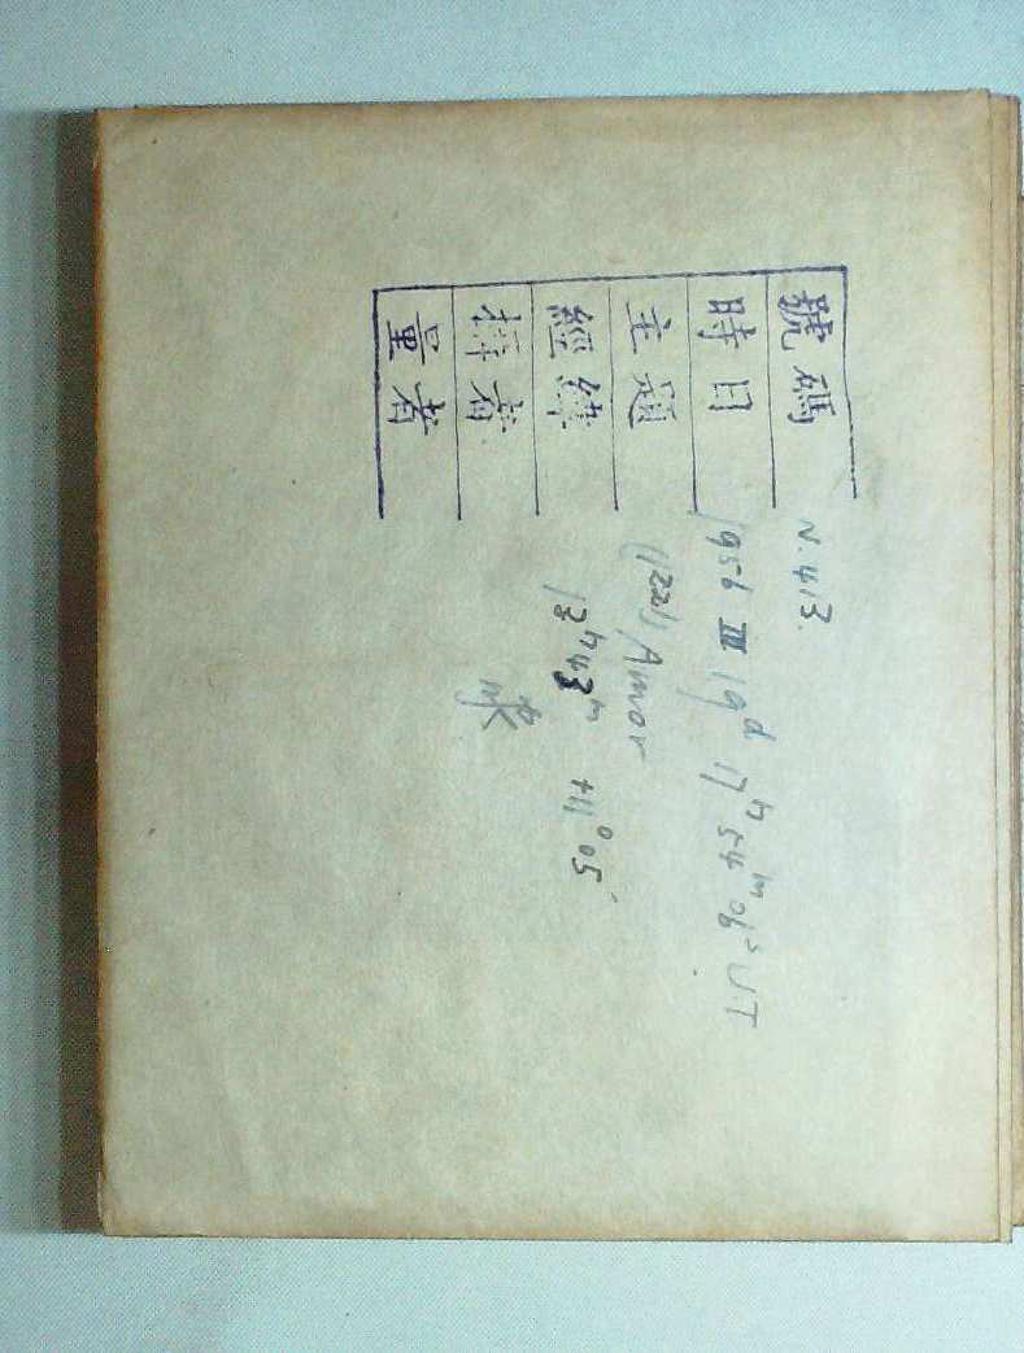 號碼 N. 413.
時日 1956 III 19ᵈ 17ʰ 54ᵐ 06ˢ UT
主題 (1221) Amor
經緯 13ʰ43ᵐ +11°05′
攝者
量者